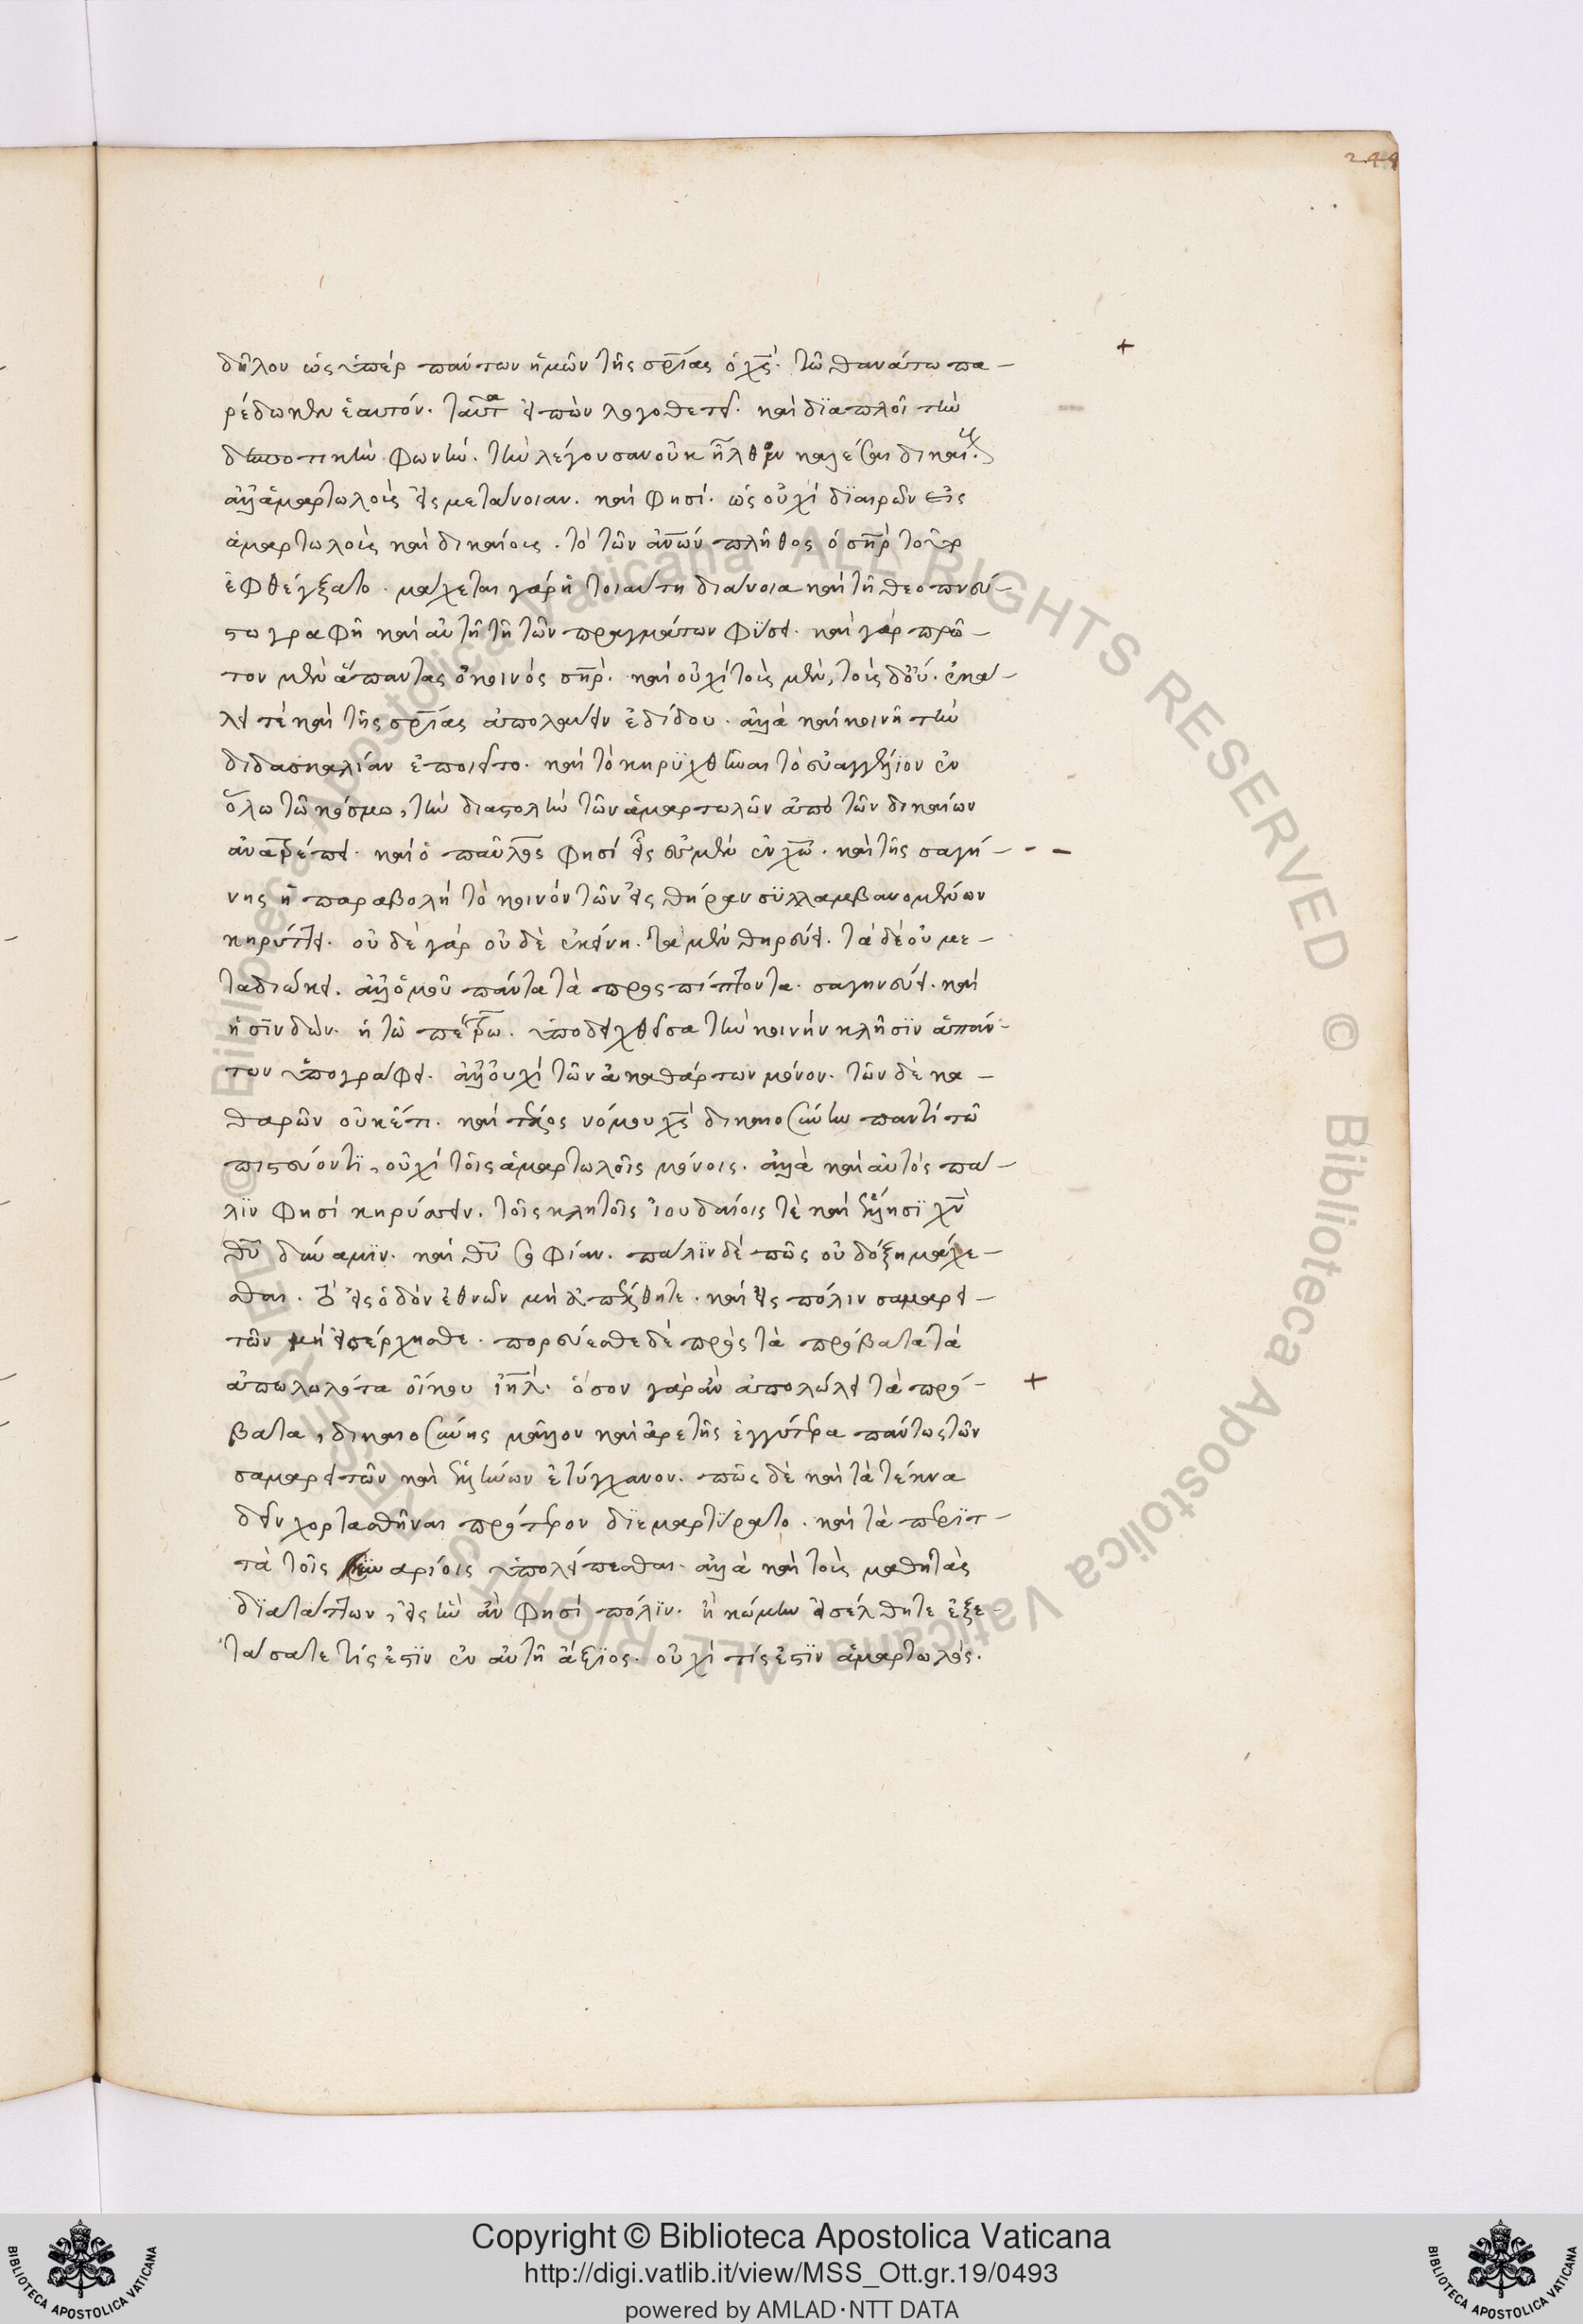 244
δῆλον ὡς ὑπὲρ πάντων ἡμῶν τῆς σρίας ὁ χς. τῶ θανάτω πα-
ρέδωκεν ἑαυτόν. ταῦτα εἰπὼν λογοθετεῖ. καὶ διαπλοῖ τὴν
δεσποτικὴν φωνήν. τὴν λέγουσαν οὐκ ἦλθον καλέσαι δικαί.
ἀλλ' ἁμαρτωλοὺς εἰς μετάνοιαν. καὶ φησί. ὡς οὐχὶ διαιρῶν εἰς
ἁμαρτωλοὺς καὶ δικαίους. τὸ τῶν ἀνων πλῆθος ὁ σηρ τοῦτο
ἐφθέγξατο. μάχεται γὰρ ἡ τοιαύτη διάνοια καὶ τῆ θεοπνεύ-
στω γραφῆ καὶ αὐτῆ τῆ τῶν πραγμάτων φύσει. καὶ γὰρ πρῶ-
τον μὲν ἅπαντας ὁ κοινὸς σηρ. καὶ οὐχὶ τοὺς μὲν, τοὺς δ' οὔ. ἐκά-
λει τὲ καὶ τῆς σρίας ἀπολαύειν ἐδίδου. ἀλλὰ καὶ κοινῆ τὴν
διδασκαλίαν ἐποιεῖτο. καὶ τὸ κηρυχθῆναι τὸ εὐαγγέλιον ἐν
ὅλω τῶ κόσμω, τὴν διαστολὴν τῶν ἁμαρτωλῶν ἀπὸ τῶν δικαίων
ἀνατρέπει. καὶ ὁ παῦλος φησὶ εἷς ἐσμὲν ἐν χω. καὶ τῆς σαγή-
νης ἡ παραβολὴ τὸ κοινὸν τῶν εἰς θήραν συλλαμβανομένων
κηρύττει. οὐδὲ γὰρ οὐδὲ ἐκείνη. τὰ μὲν θηρεύει. τὰ δὲ οὐ με-
ταδιώκει. ἀλλ' ὁμοῦ πάντα τὰ προσπίπτοντα. σαγηνεύει. καὶ
ἡ σινδὼν. ἡ τῶ πέτρω. ὑποδειχθεῖσα τὴν κοινὴν κλῆσιν ἁπάν-
των ὑπογράφει. ἀλλ' οὐχὶ τῶν ἀκαθάρτων μόνον. τῶν δὲ κα-
θαρῶν οὐκέτι. καὶ τέλος νόμου χς δικαιοσύνην παντὶ τῶ
πιστεύοντι, οὐχὶ τοῖς ἁμαρτωλοῖς μόνοις. ἀλλὰ καὶ αὐτὸς πά-
λιν φησὶ κηρύσσειν. τοῖς κλητοῖς ἰουδαίοις τὲ καὶ ἕλλησι χν
θυ δύναμιν. καὶ θυ σοφίαν. πάλιν δὲ πῶς οὐ δόξη μάχε-
σθαι. τὸ εἰς ὁδὸν ἐθνῶν μὴ ἀπέλθητε. καὶ εἰς πόλιν σαμαρει-
τῶν μὴ εἰσέρχησθε. πορεύεσθε δὲ πρὸς τὰ πρόβατα τὰ
ἀπολωλότα οἴκου ιηλ. ὅσον γὰρ ἂν ἀπολώλει τὰ πρό-
βατα, δικαιοσύνης μᾶλλον καὶ ἀρετῆς ἐγγύτερα πάντως τῶν
σαμαρειτῶν καὶ ἑλλήνων ἐτύγχανον. πῶς δὲ καὶ τὰ τέκνα
δεῖν χορτασθῆναι πρότερον διεμαρτύρατο. καὶ τὰ περιτ-
τὰ τοῖς κυναρίοις ὑπολείπεσθαι. ἀλλὰ καὶ τοὺς μαθητὰς
διατάττων, εἰς ἣν ἂν φησὶ πόλιν. ἢ κώμην εἰσέλθητε ἐξε-
τάσατε τίς ἐστιν ἐν αὐτῆ ἄξιος. οὐχὶ τίς ἐστιν ἁμαρτωλός.
Copyright © Biblioteca Apostolica Vaticana
http://digi.vatlib.it/view/MSS_Ott.gr.19/0493
powered by AMLAD·NTT DATA